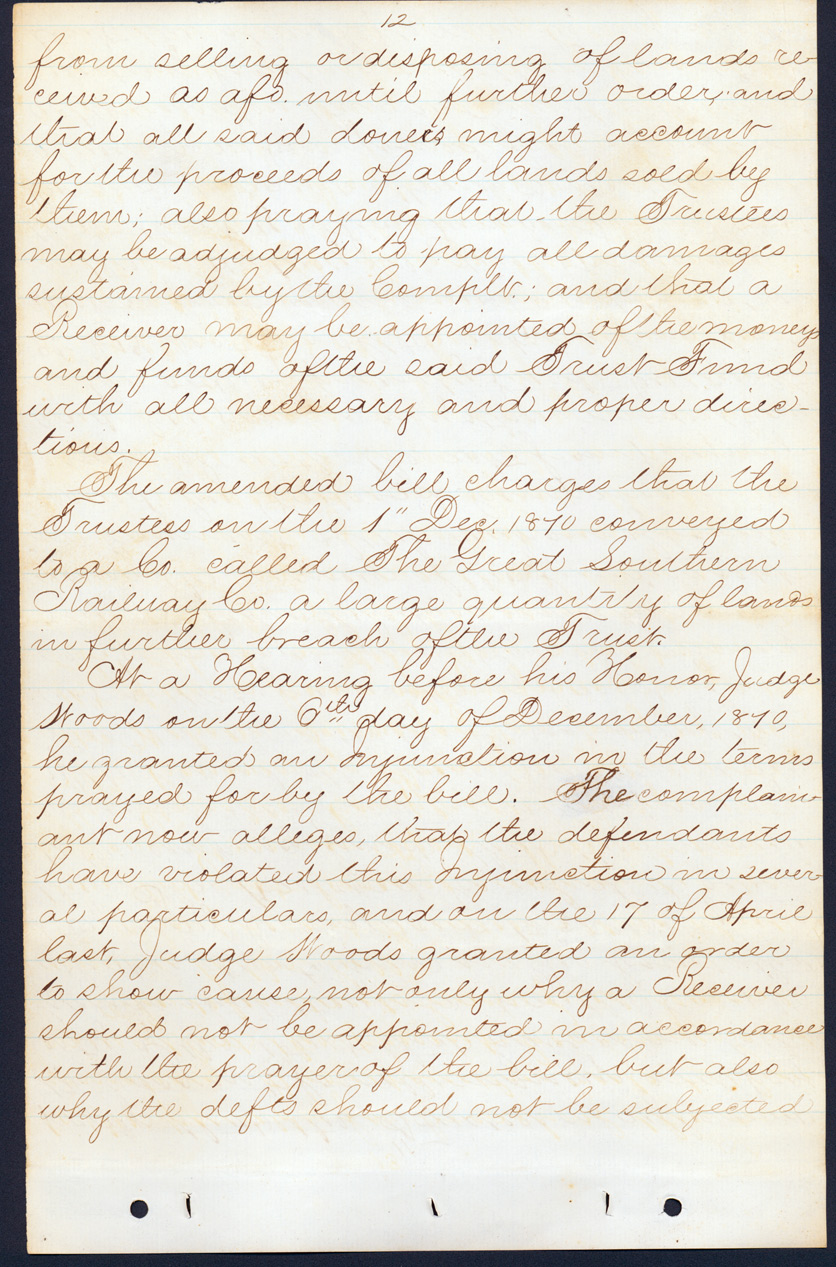 12
from selling or disposing of lands re-
ceived as afs. until further order, and
that all said donees might account
for the proceeds of all lands sold by
them; also praying that the Trustees
may be adjudged to pay all damages
sustained by the Complt.; and that a
Receiver may be appointed of the moneys
and funds of the said Trust Fund
with all necessary and proper direc-
tions.
The amended bill charges that the
Trustees on the 1" Dec. 1870 conveyed
to a Co. called The Great Southern
Railway Co. a large quantity of lands
in further breach of the Trust.
At a Hearing before his Honor, Judge
Woods on the 6th day of December, 1870,
he granted an Injunction in the terms
prayed for by the bill. The complain-
ant now alleges, that the defendants
have violated this Injunction in sever-
al particulars, and on the 17 of April
last, Judge Woods granted an order
to show cause, not only why a Receiver
should not be appointed in accordance
with the prayer of the bill, but also
why the defts should not be subjected